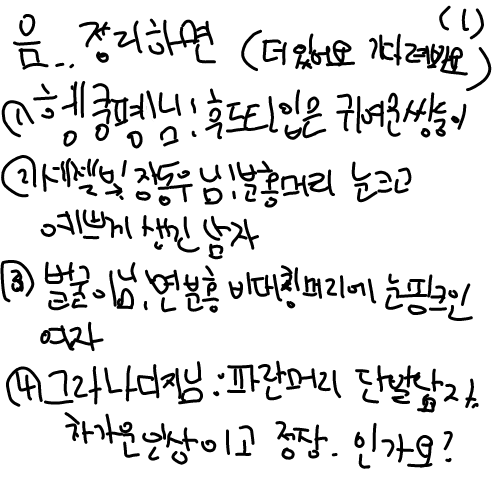 (1)
음... 정리하면 (더 있어요 기다려봐요)
① 행궁평님: 후드티 입은 귀여운 쌍둥이
② 세젤빛 장동우님: 분홍머리 눈크고
예쁘게 생긴 남자
③ 벌꿀이님: 연분홍 비대칭머리에 눈핑크인
여자
④ 그라나디지님: 파란머리 단발남자
차가운 인상이고 정장. 인가요?